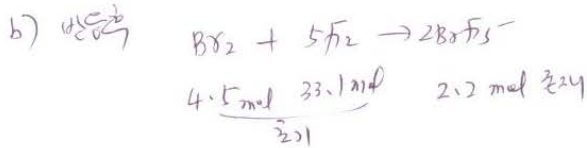 b) 반응식 Br₂ + 5F₂ → 2BrF₅
4.5 mol 33.1 mol 2.2 mol 존재
초기